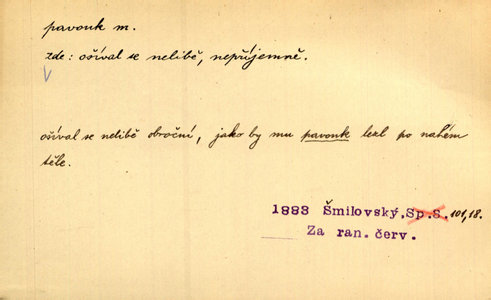 pavouk m.
zde: ošíval se nelibě, nepříjemně.
ošíval se nelibě obroční, jako by mu pavouk lezl po nahém
těle.
1883 Šmilovský, Sp.S. 101,18.
Za ran. červ.